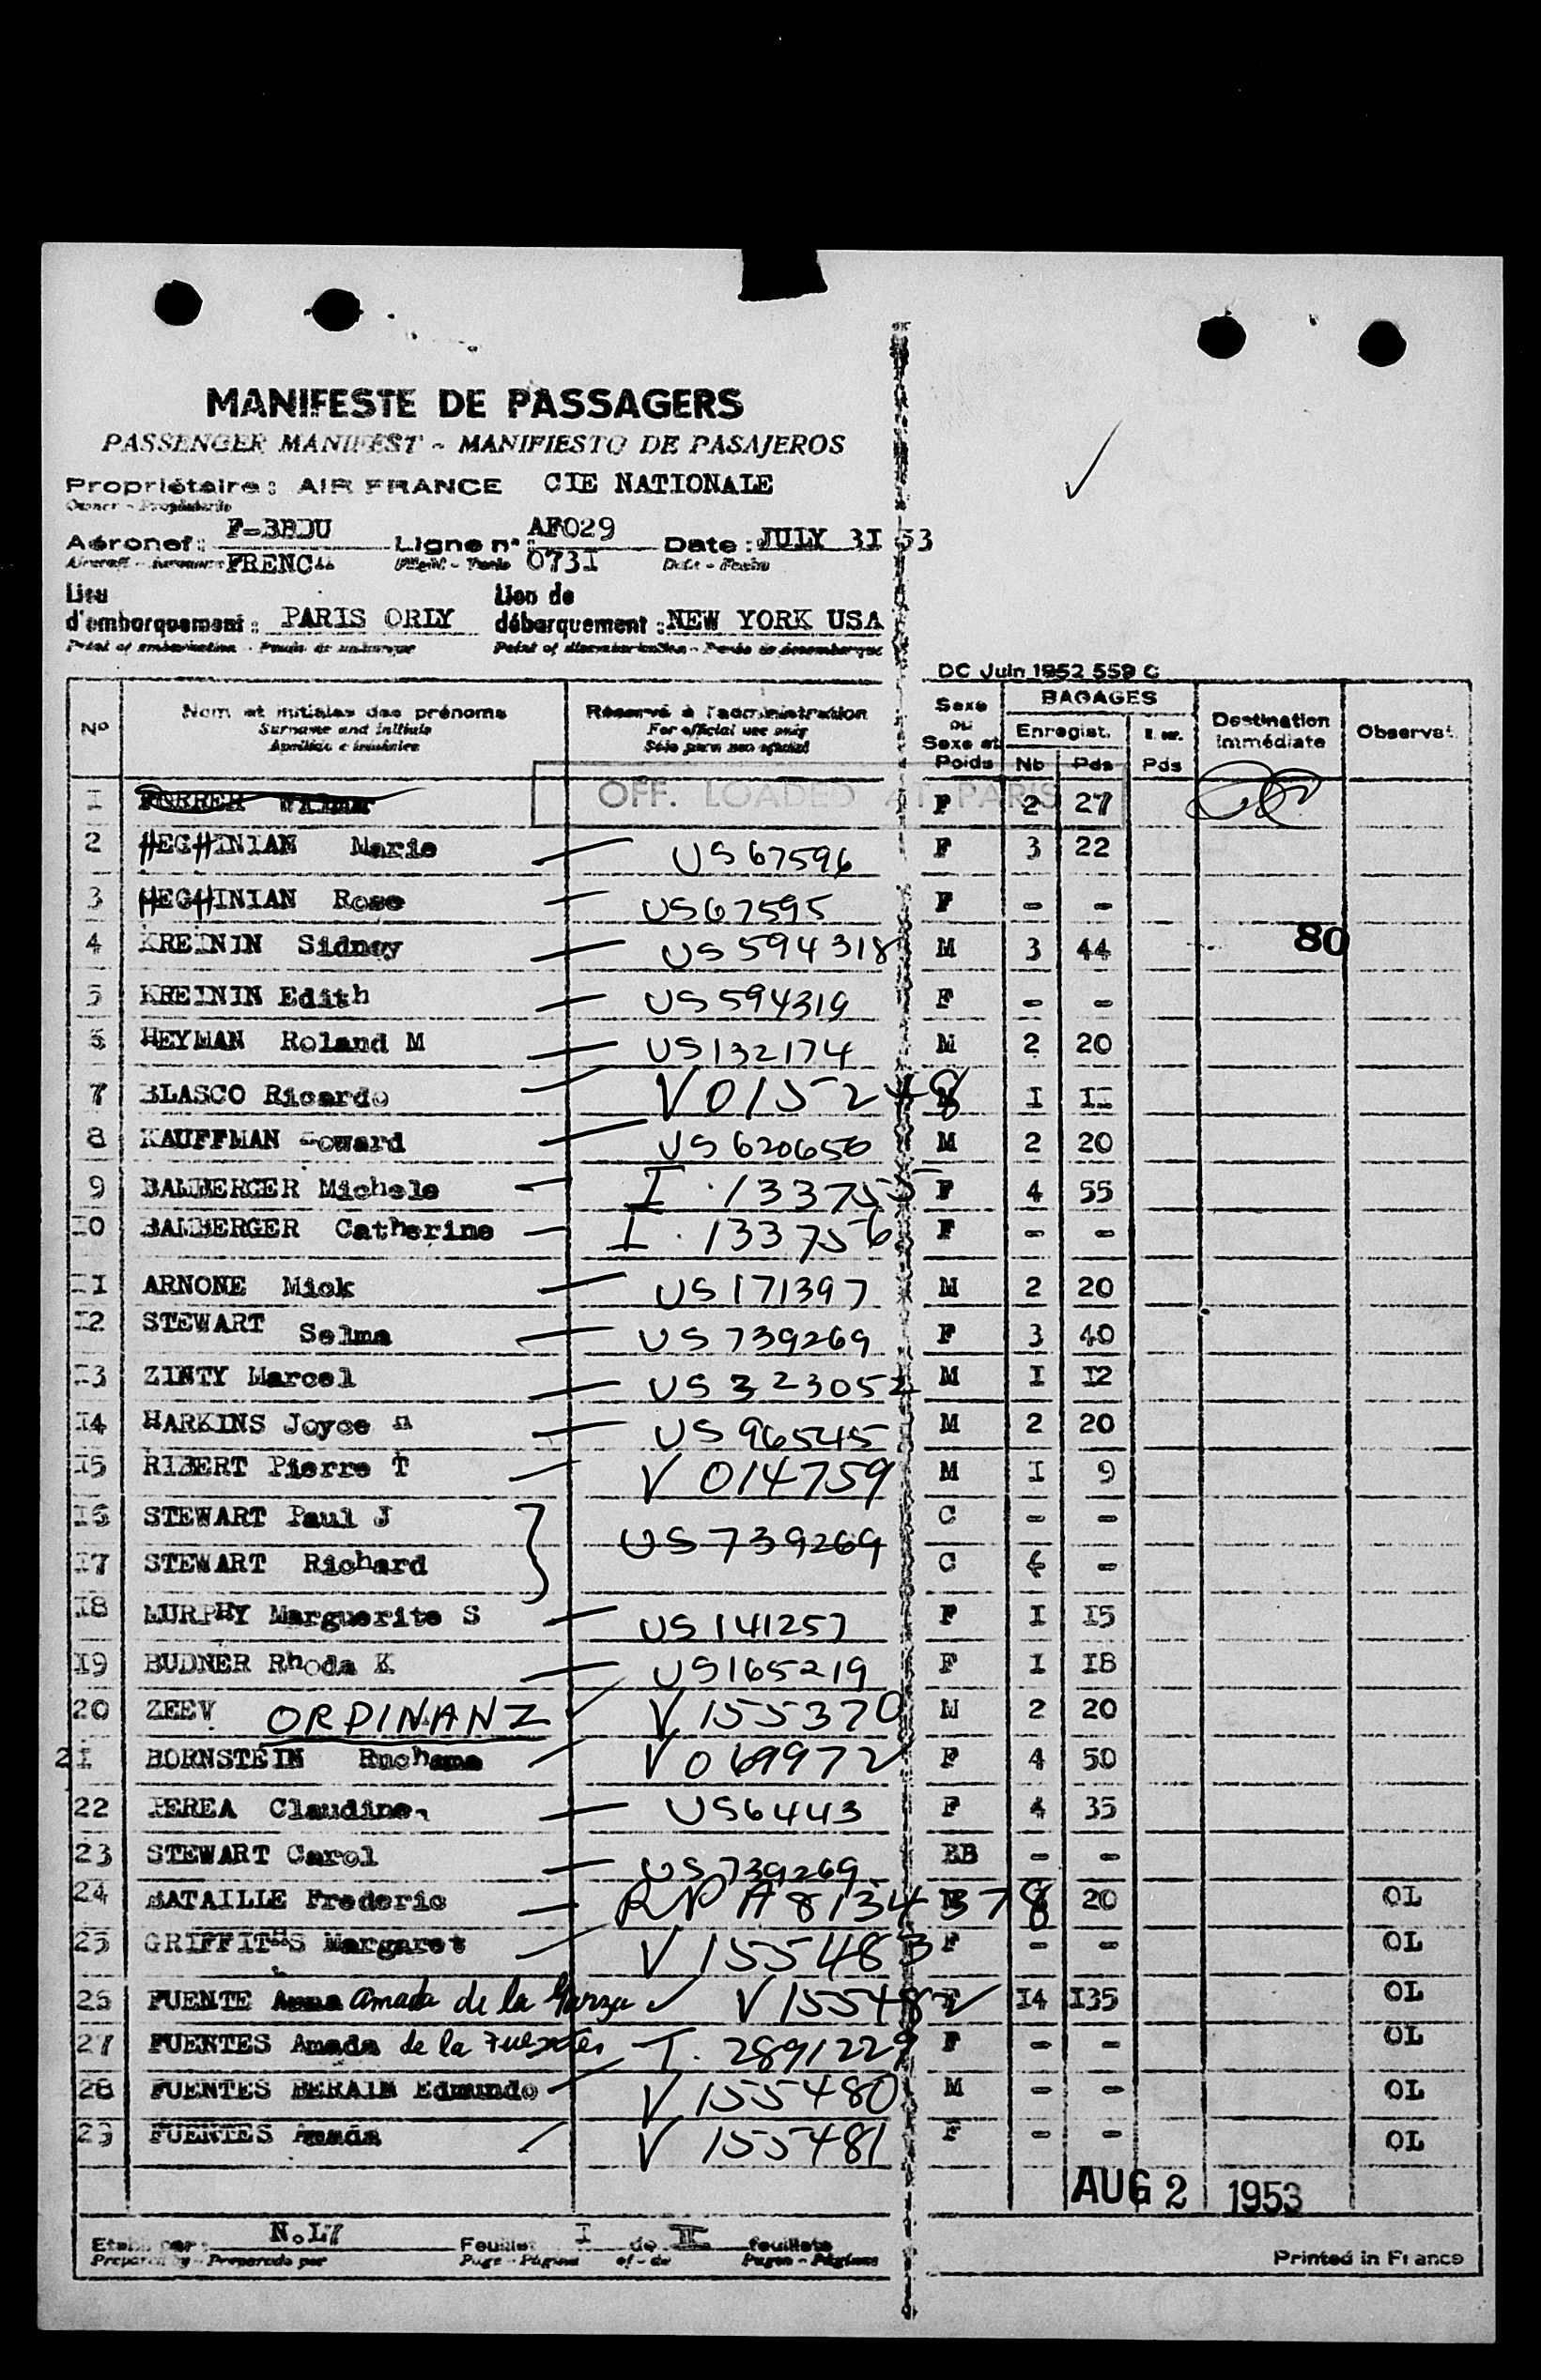 MANIFESTE DE PASSAGERS
PASSENGER MANIFEST - MANIFIESTO DE PASAJEROS
Propriétaire : AIR FRANCE CIE NATIONALE
Aéronef : Ligne n° AF029 Date : JULY 3I 53
FRENCH 073I
Lieu d'embarquement : PARIS ORLY Lieu de débarquement : NEW YORK USA
Point of embarkation Point of disembarkation
DC Juin 1952 559 C
N° Nom et initiales des prénoms Réservé à l'administration Sexe ou Sexe et Poids BAGAGES Enregist. Nb Pds Pds Destination immédiate Observat.
Surname and initials For official use only
OFF. LOADED AT PARIS
I F 2 27
2 HEGHINIAN Marie US 67596 F 3 22
3 HEGHINIAN Rose US 67595 F - -
4 KREININ Sidney US 594318 M 3 44 80
5 KREININ Edith US 594319 F - -
6 HEYMAN Roland M US 132174 M 2 20
7 BLASCO Ricardo V 0155248 I II
8 KAUFFMAN Howard US 620650 M 2 20
9 BAMBERGER Michele I. 133755 F 4 55
I0 BAMBERGER Catherine I. 133756 F - -
II ARNONE Mick US 171397 M 2 20
I2 STEWART Selma US 739269 F 3 40
I3 ZINTY Marcel US 323052 M I I2
I4 HARKINS Joyce H US 96545 M 2 20
I5 RIBERT Pierre T V 014759 M I 9
I6 STEWART Paul J C - -
US 739269
I7 STEWART Richard C -
I8 MURPHY Marguerite S US 141257 F I I5
I9 BUDNER Rhoda K US 165219 F I I8
20 ZEEV ORDINANZ V 155370 M 2 20
2I BORNSTEIN Ruchama V 069972 F 4 50
22 PEREA Claudine US 6443 F 4 35
23 STEWART Carol US 739269 BB - -
24 BATAILLE Frederic RNP A8134378 20 OL
25 GRIFFITHS Margaret V 155483 F - - OL
26 FUENTE Amada de la Garza V 155482 F I4 I35 OL
27 FUENTES Amada de la Fuentes T. 2891229 F - - OL
28 FUENTES BERAIN Edmundo V 155480 M - - OL
29 FUENTES Amada V 155481 F - - OL
AUG 2 1953
Etabli par : N.L7 Feuillet I de II feuillets
Prepared by - Preparado por Page - Página of - de Pages - Páginas
Printed in France